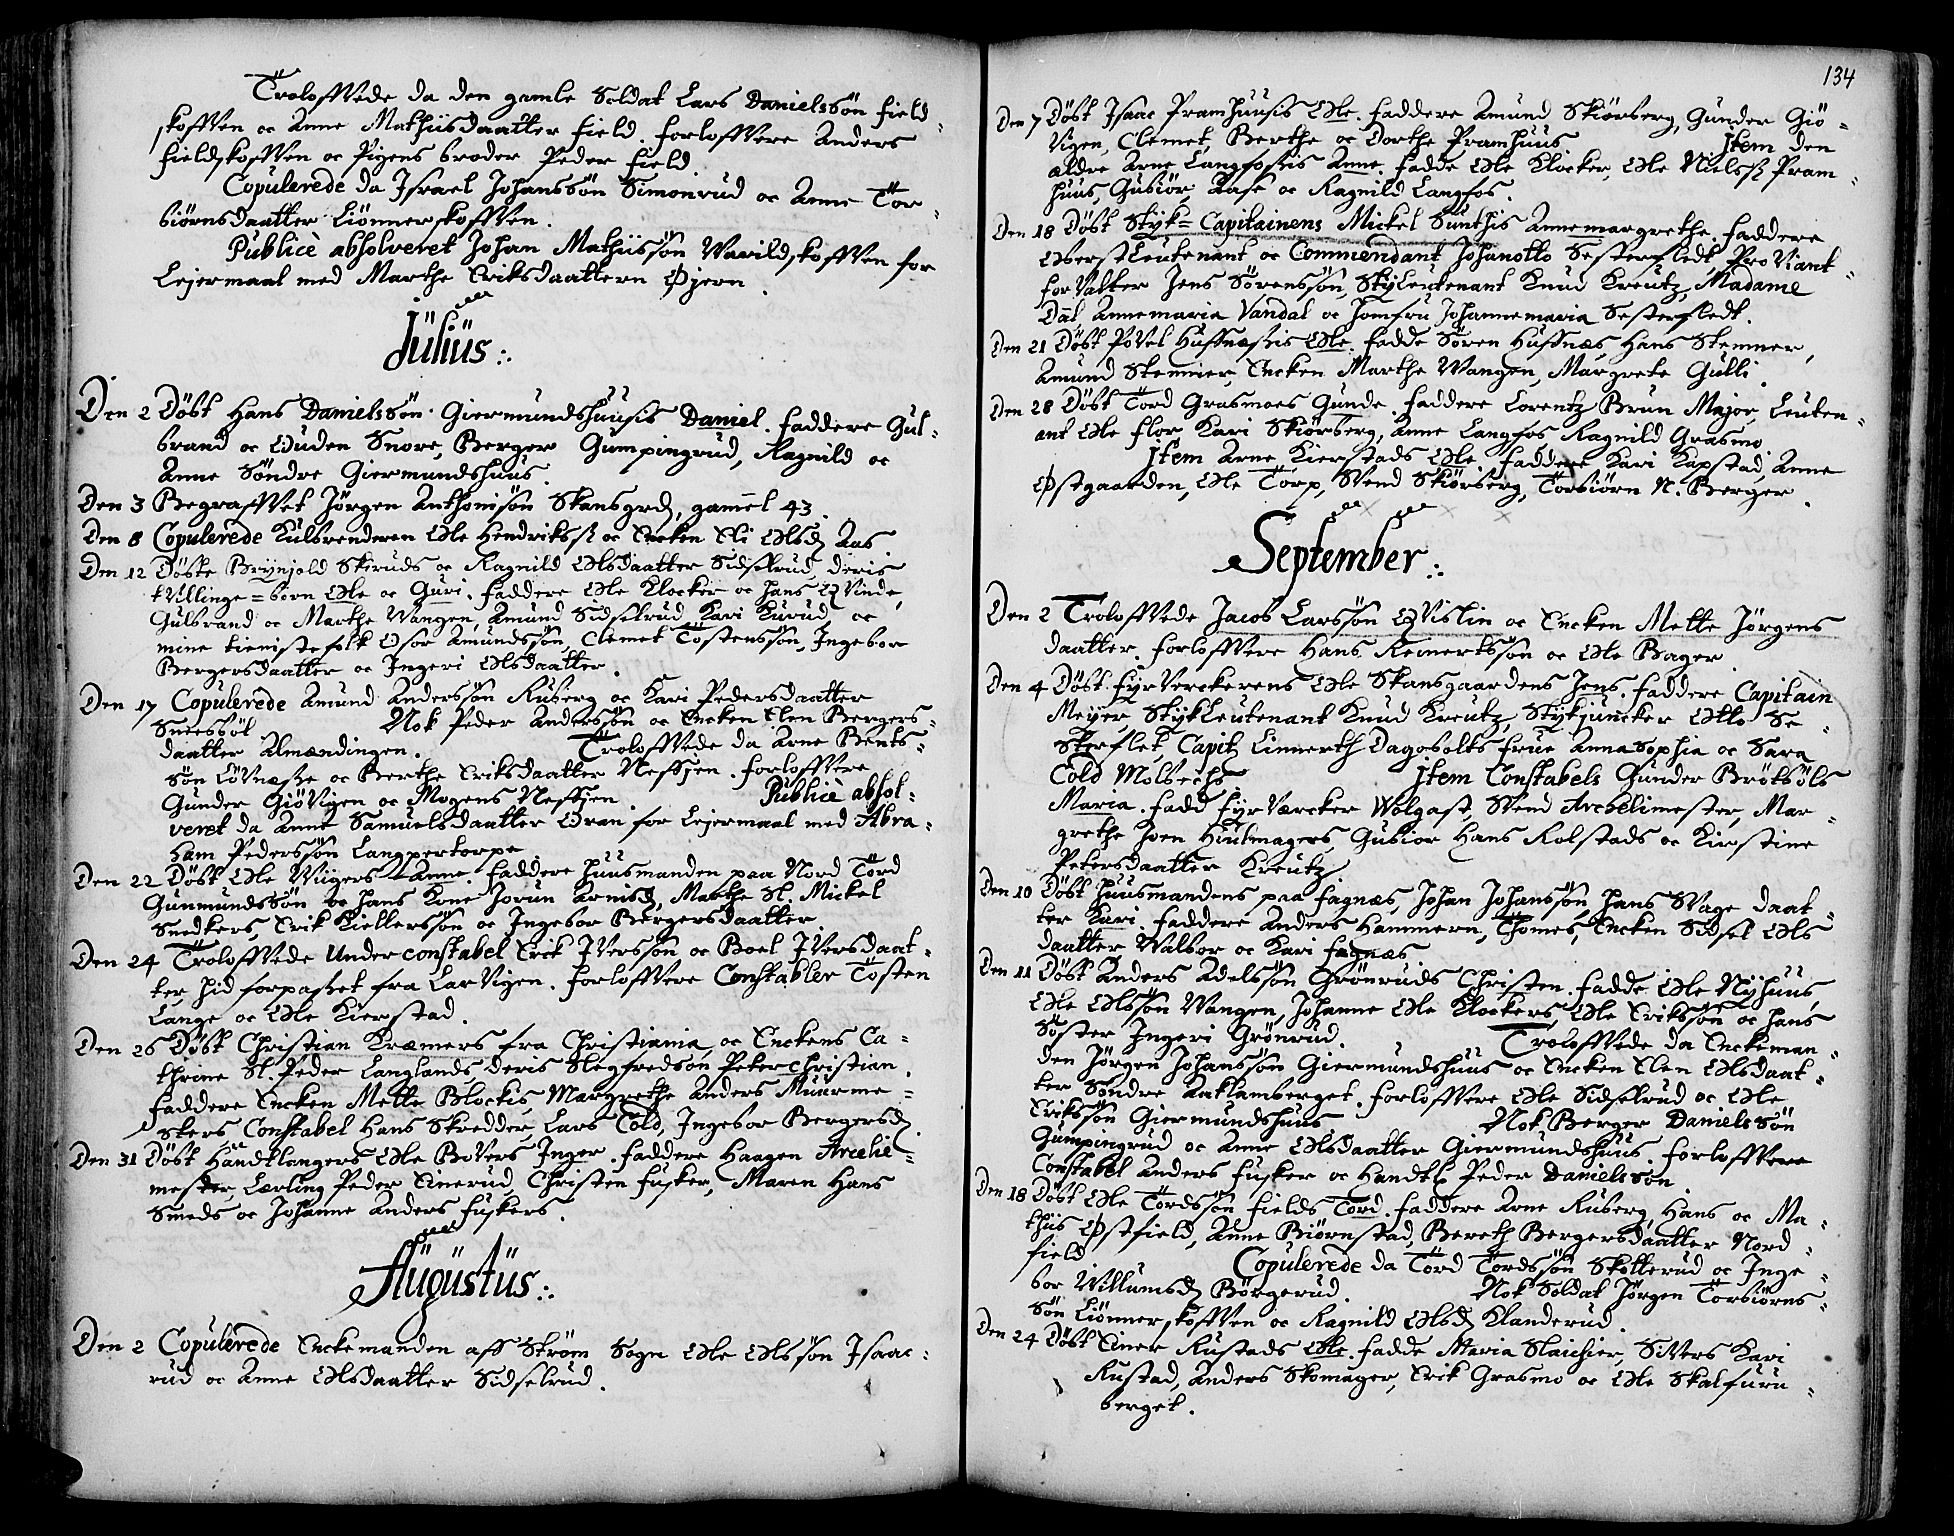 Troloffvede da den gamle Soldat Lars Danielssön Field-
skoffven oc Anne Mathiisdaatter Field. Forloffvere Anders
Fieldskoffven oc Pigens broder Peder Field.
Copulerede da Israel Johanssön Simonrud oc Anne Tor-
biörnsdaatter Liönnerskoffven.
Publicè absolveret Johan Mathiissön Varildskoffven for
Lejermaal med Marthe Eriksdaattern Øjern.
Jülius:.
Den 2 Döbt Hans Danielssön Giermundshuusis Daniel. Faddere Gul-
brand oc Ouden Snore, Berger Gumpingrud, Ragnild oc
Anne Söndre Giermundshuus.
Den 3 Begraffvet Jörgen Anthonisön Skansgrd, gamel 43.
Den 8 Copulerede Kulsvenderen Ole Hendrikss oc Encken Eli Olsd Aas
Den 12 Döbte Brynjold Skiruds oc Ragnild Olsdaatter Sidselrud deris
tvillinge-born Ole oc Guri. Faddere Ole Klocker oc hans Qvinde,
Gulbrand oc Marthe Wangen, Amund Sidselrud, Kari Kurud, oc
mine tieniste folk Osor Amundssön, Clemet Töstenssön, Ingebor
Bergersdaatter oc Ingeri Olsdaatter.
Den 17 Copulerede Amund Anderssön Ruberg oc Kari Pedersdaatter
Sneesböl. Nok Peder Anderssön oc Encken Elen Bergers-
daatter Almændingen. Troloffvede da Arne Bents-
sön Lövnæsse oc Berthe Eriksdaatter Nessjen. Forloffvere
Gunder Giövigen oc Mogens Nessjen. Publicè absol-
veret da Anne Samuelsdaatter Oran for Lejermaal med Abra-
ham Pederssön Langpertorpe
Den 22 Döbt Ole Wiigers Anne. Faddere Huusmanden paa Nord Tord
Gunmundssön oc hans Kone Jorun Arnisd, Marthe Sl. Mickel
Snedkers, Erik Kiellerssön oc Ingebor Bergersdaatter
Den 24 Troloffvede Underconstabel Erick Iverssön oc Boel Iversdaat-
ter hid forpasset fra Larvigen. Forloffvere Constabler Tösten
Lange oc Ole Kierstad.
Den 26 Döbt Christian Kræmers fra Christiania, oc Enckens Ca-
thrine Sl. Peder Langlands deris Slegfredsön Peter christian.
Faddere Encken Mette Blockis, Margrethe Anders Muurme-
sters, Constabel Hans Skredder, Lars Cold, Ingebor Bergersd.
Den 31 Döbt Handtlangers Ole Bovers Inger. Faddere Haagen Arcelie-
mester, Lærling Peder Einerud, Christen Fusker, Maren Hans
Smeds oc Johanne Anders Fuskers.
Augustüs:.
Den 2 Copulerede Enckemanden aff Ström Sogn Ole Olssön Isaac-
rud oc Anne Olsdaatter Sidselrud.
134
Den 7 Döbt Isaac Pramhuusis Ole. Faddere Amund Skiörberg, Gunder Giö-
vigen, Clemet, Berthe oc Dorthe Pramhuus Item den
ældre Arne Langfossis Anne. Fadde Ole Klocker, Ole Nielss Pram-
huus, Gubiör, Aase oc Ragnild Langfos.
Den 18 Döbt Styk-Capitainens Mickel Sunthis Annemargrethe. Faddere
Oberstleutenant oc Commendant Johanotto Sesterfledt, Proviant-
forvalter Jens Sörenssön, Stykleutenant Knud Kreutz, Madame
Dal Annemaria Vandal oc Jomfru Johannemaria Sesterfledt.
Den 21 Döbt Povel Hussnæssis Ole. Fadde Sören Hussnæs, Hans Stemner,
Amund Stemner, Encken Marthe Wangen, Margrete Gulli.
Den 28 Döbt Tord Grasmoes Gunde. Faddere Lorentz Brun Major, Leuten-
ant Ole Flor, Kari Skiörberg, Anne Langfos, Ragnild Grasmo
Item Arne Kierstads Ole. Faddere Kari Kapstad, Anne
Østgaarden, Ole Torp, Svend Skiörberg, Torbiörn N. Berger.
September:.
Den 2 Troloffvede Jacob Larssön Qvislin oc Encken Mette Jörgens
daatter. Forloffvere Hans Reinertssön oc Ole Bager.
Den 4 Döbt Fyrverckerens Ole Skansgaardens Jens. Faddere Capitain
Meyer, Stykleutenant Knud Kreutz, Stykjuncker Otto Se-
sterflet, Capitz Linnerth Dagobolts Frue Anna Sophia oc Sara
Cold Molbechs Item Constabels Gunder Brötsöls
Maria. Fadd Fyrværcker Wolgast, Svend Arcelimester, Mar-
grethe Joen Hiulmagers, Gubior Hans Kolstads oc Kirstine
Petersdaatter Kreutz.
Den 10 Döbt Huusmandens paa Fagnæs, Johan Johanssön, hans svage daat-
ter Kari. Faddere Anders Hammern, Thomes, Encken Sidsel Ols
daatter Valbor oc Kari Fagnæs
Den 11 Döbt Anders Adelssön Grönruds Christen. Fadde Ole Nyhuus,
Ole Olssön Wangen, Johanne Ole Klockers, Ole Erikssön oc hans
Söster Ingeri Grönrud. Troloffvede da Enckeman-
den Jörgen Johanssön Giermundshuus oc Encken Elen Olsdaat-
ter Söndre Aaklamberget. Forloffvere Ole Sidselrud oc Ole
Erikssön Giermundshuus Nok Berger Danielssön
Gumpingrud oc Anne Olsdaatter Giermundshuus. Forloffvere
Constabel Anders Fusker oc Handtl Peder Danielssön.
Den 18 Döbt Ole Tordssön Fields Tord. Faddere Arne Ruberg, Hans oc Ma-
thiis Østfield, Anne Biörnstad, Bereth Bergersdaatter Nord-
field Copulerede da Tord Tordssön Skotterud oc Inge-
bor Willumsd Börgerud. Nok Soldat Jörgen Torbiörns-
sön Liönnerskoffven oc Ragnild Olsd Klanderud.
Den 24 Döbt Einer Rustads Ole. Fadde Maria Slaichier, Sivers Kari
Rustad, Anders Skomager, Erik Grasmo oc Ole Skalfuru-
berget.